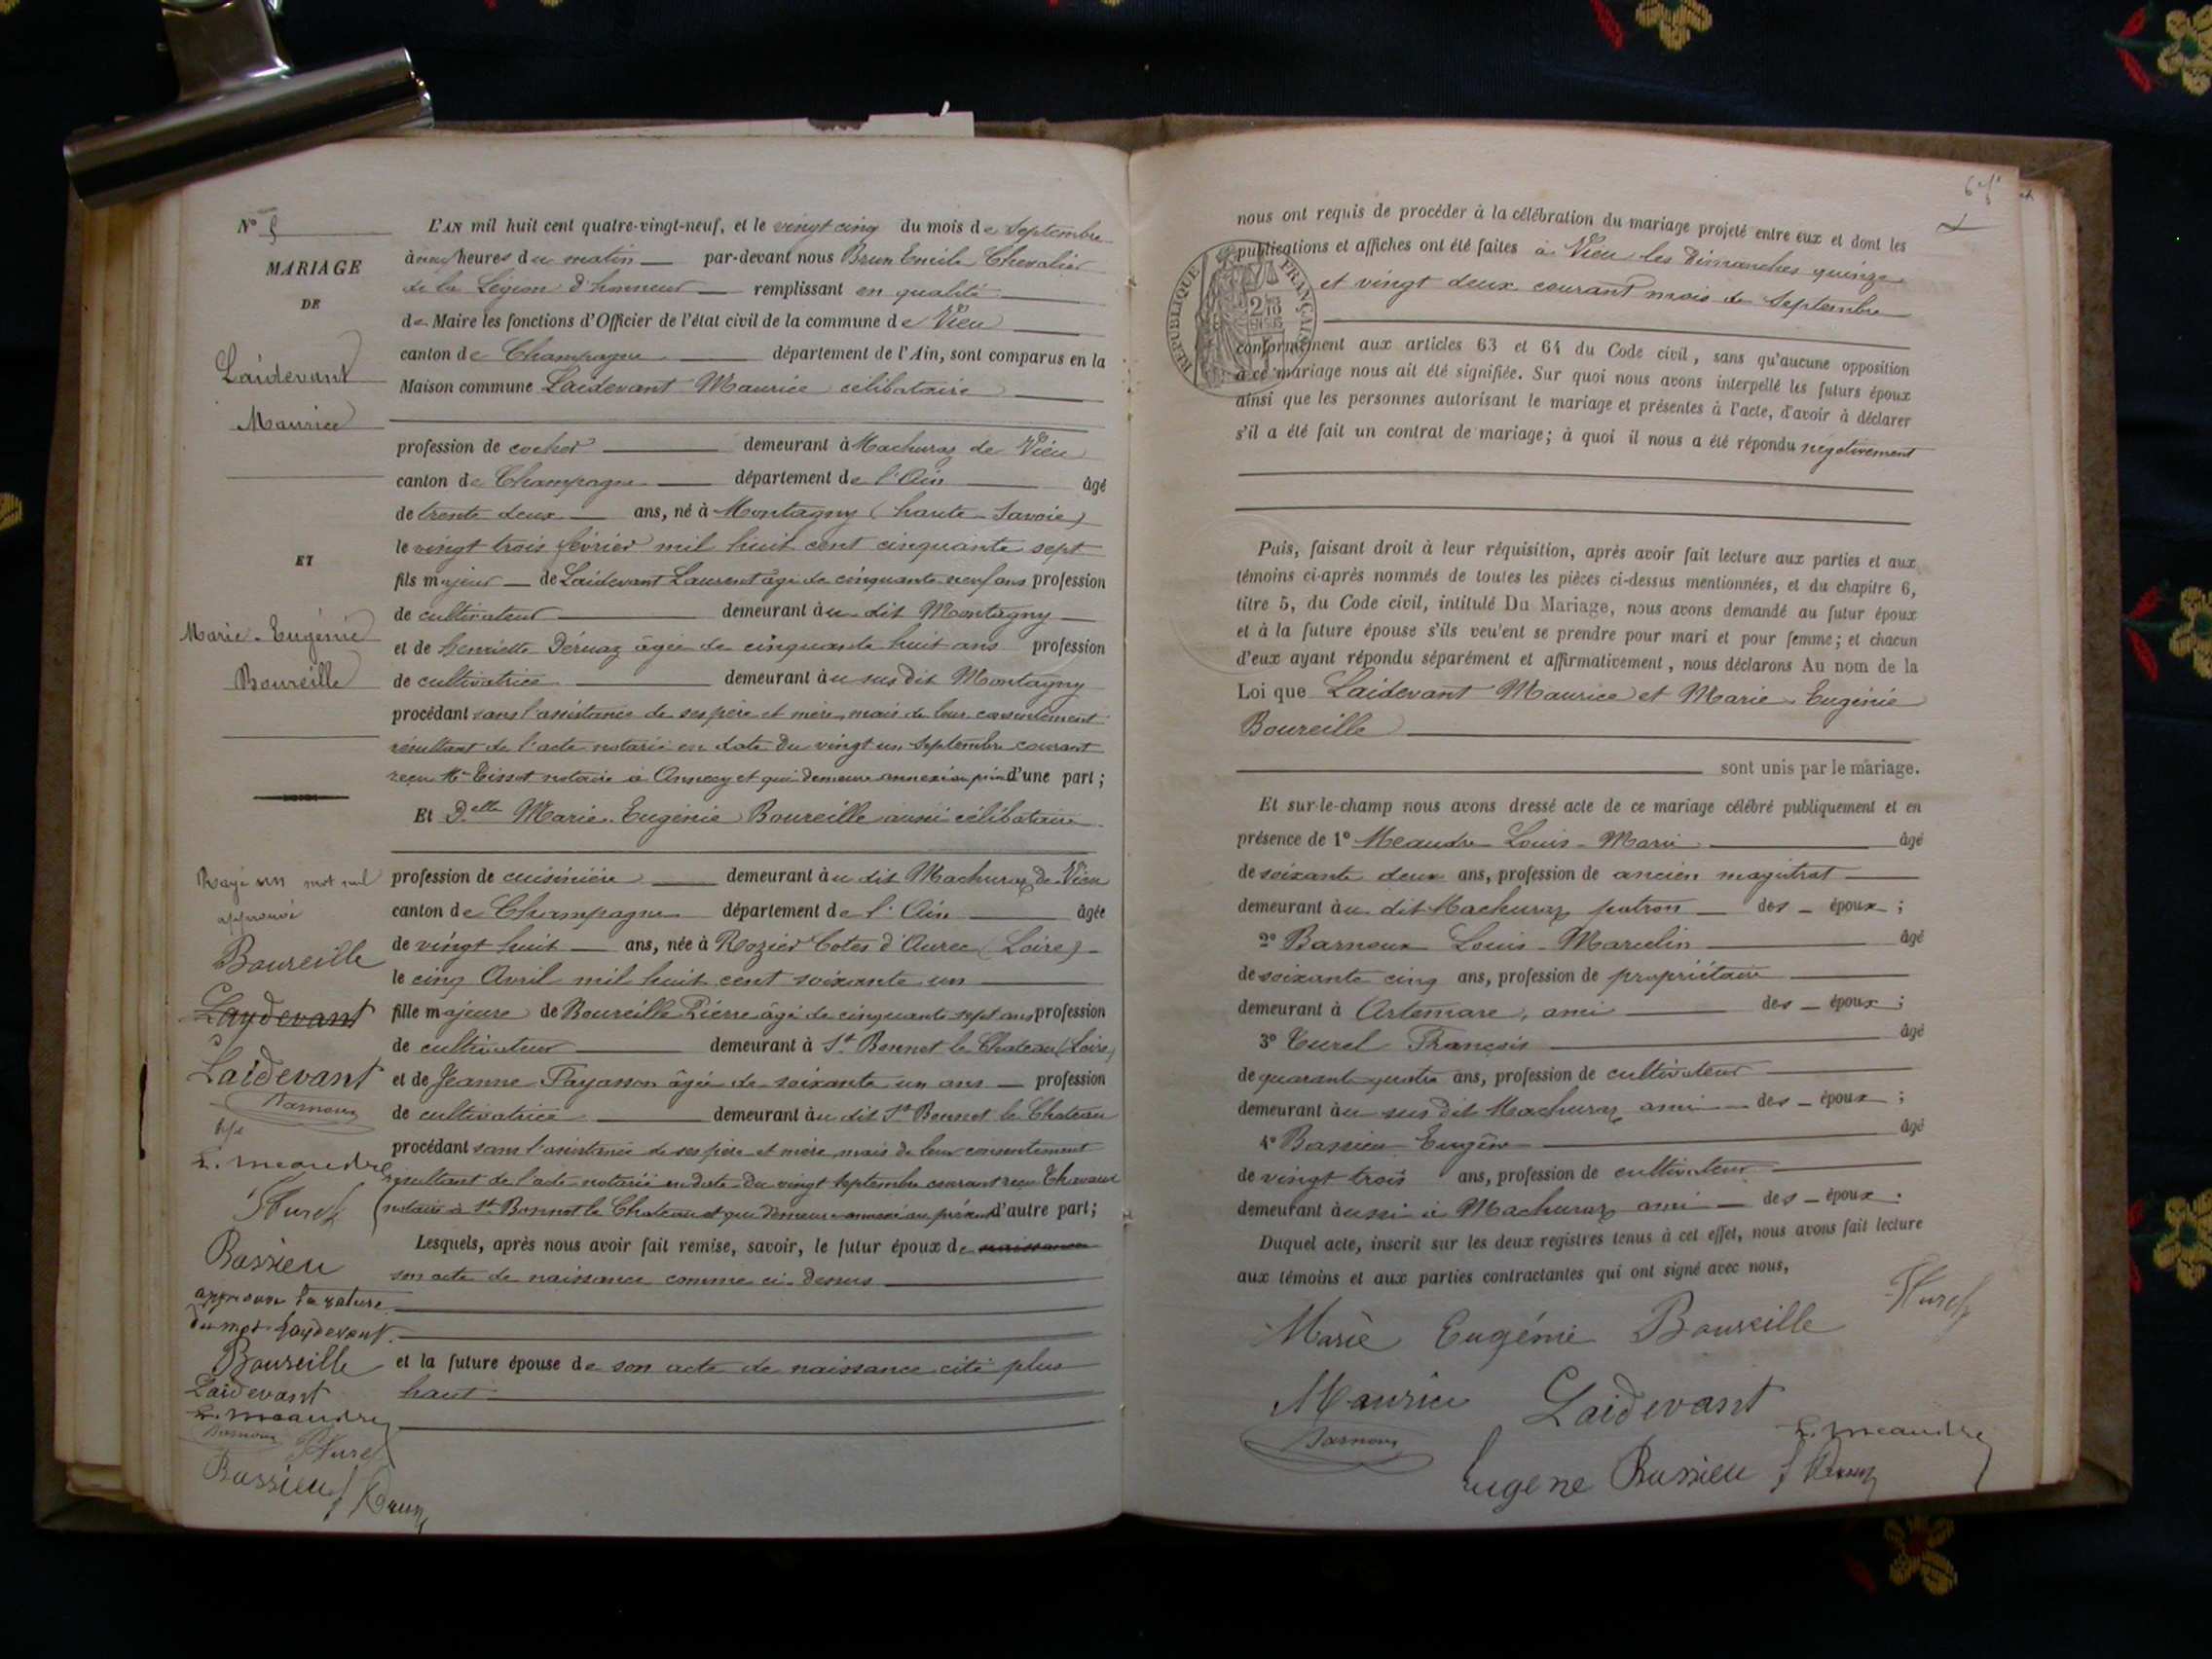 MARIAGE
DE
Laidevant
Maurice
ET
Marie-Eugénie
Boureille
Rayé un mot nul
approuvé
Boureille
Laydevant
Laidevant
Barnoux
L. Meandre
Bassieu
approuvé la rature
du mot Laydevant.
Boureille
Laidevant
L. Meandre
Barnoux
Bassieu
L'AN mil huit cent quatre-vingt-neuf, et le vingt cinq du mois de Septembre
à neuf heures du matin par-devant nous Brun Emile Chevalier
de la Légion d'honneur remplissant en qualité
de Maire les fonctions d'Officier de l'état civil de la commune de Vieu
canton de Champagne département de l'Ain, sont comparus en la
Maison commune Laidevant Maurice célibataire
profession de cocher demeurant à Machuraz de Vieu
canton de Champagne département de l'Ain âgé
de trente deux ans, né à Montagny (haute-Savoie)
le vingt trois février mil huit cent cinquante sept
fils majeur de Laidevant Laurent âgé de cinquante neuf ans profession
de cultivateur demeurant au dit Montagny
et de henriette Dérvaz âgée de cinquante huit ans profession
de cultivatrice demeurant au sus dit Montagny
procédant sans l'assistance de ses père et mère, mais de leur consentement
résultant de l'acte notarié en date du vingt un Septembre courant
reçu Me notaire à Annecy et qui demeure annexé au d'une part;
Et Delle Marie-Eugénie Boureille aussi célibataire
profession de cuisinière demeurant au dit Machuraz de Vieu
canton de Champagne département de l'Ain âgée
de vingt huit ans, née à Rozier Cotes d'Aurec (Loire)
le cinq Avril mil huit cent soixante un
fille majeure de Boureille Pierre âgé de cinquante sept ans profession
de cultivateur demeurant à St Bonnet le Chateau (Loire)
et de Jeanne Payasson âgée de soixante un ans profession
de cultivatrice demeurant au dit St Bonnet le Chateau
procédant sans l'assistance de ses père et mère, mais de leur consentement
résultant de l'acte notarié en date du vingt Septembre courant reçu Thavaux
notaire à St Bonnet le Chateau et qui demeure annexé au présent d'autre part;
Lesquels, après nous avoir fait remise, savoir, le futur époux de naissance
son acte de naissance comme ci-dessus
et la future épouse de son acte de naissance cité plus
haut
nous ont requis de procéder à la célébration du mariage projeté entre eux et dont les
publications et affiches ont été faites à Vieu les Dimanches quinze
et vingt deux courant mois de Septembre
RÉPUBLIQUE FRANÇAISE
conformément aux articles 63 et 64 du Code civil, sans qu'aucune opposition
à ce mariage nous ait été signifiée. Sur quoi nous avons interpellé les futurs époux
ainsi que les personnes autorisant le mariage et présentes à l'acte, d'avoir à déclarer
s'il a été fait un contrat de mariage; à quoi il nous a été répondu négativement
Puis, faisant droit à leur réquisition, après avoir fait lecture aux parties et aux
témoins ci-après nommés de toutes les pièces ci-dessus mentionnées, et du chapitre 6,
titre 5, du Code civil, intitulé Du Mariage, nous avons demandé au futur époux
et à la future épouse s'ils veulent se prendre pour mari et pour femme; et chacun
d'eux ayant répondu séparément et affirmativement, nous déclarons Au nom de la
Loi que Laidevant Maurice et Marie-Eugénie
Boureille
sont unis par le mariage.
Et sur-le-champ nous avons dressé acte de ce mariage célébré publiquement et en
présence de 1° Meandre Louis-Marie âgé
de soixante deux ans, profession de ancien magistrat
demeurant au dit Machuraz patron des époux;
2° Barnoux Louis-Marcelin âgé
de soixante cinq ans, profession de propriétaire
demeurant à Artemare, ami des époux;
3° Turel François âgé
de quarante quatre ans, profession de cultivateur
demeurant au sus dit Machuraz ami des époux;
4° Bassieu Eugène âgé
de vingt trois ans, profession de cultivateur
demeurant aussi à Machuraz ami des époux.
Duquel acte, inscrit sur les deux registres tenus à cet effet, nous avons fait lecture
aux témoins et aux parties contractantes qui ont signé avec nous,
Marie Eugénie Boureille
Maurice Laidevant
Barnoux
L. Meandre
Eugene Bassieu